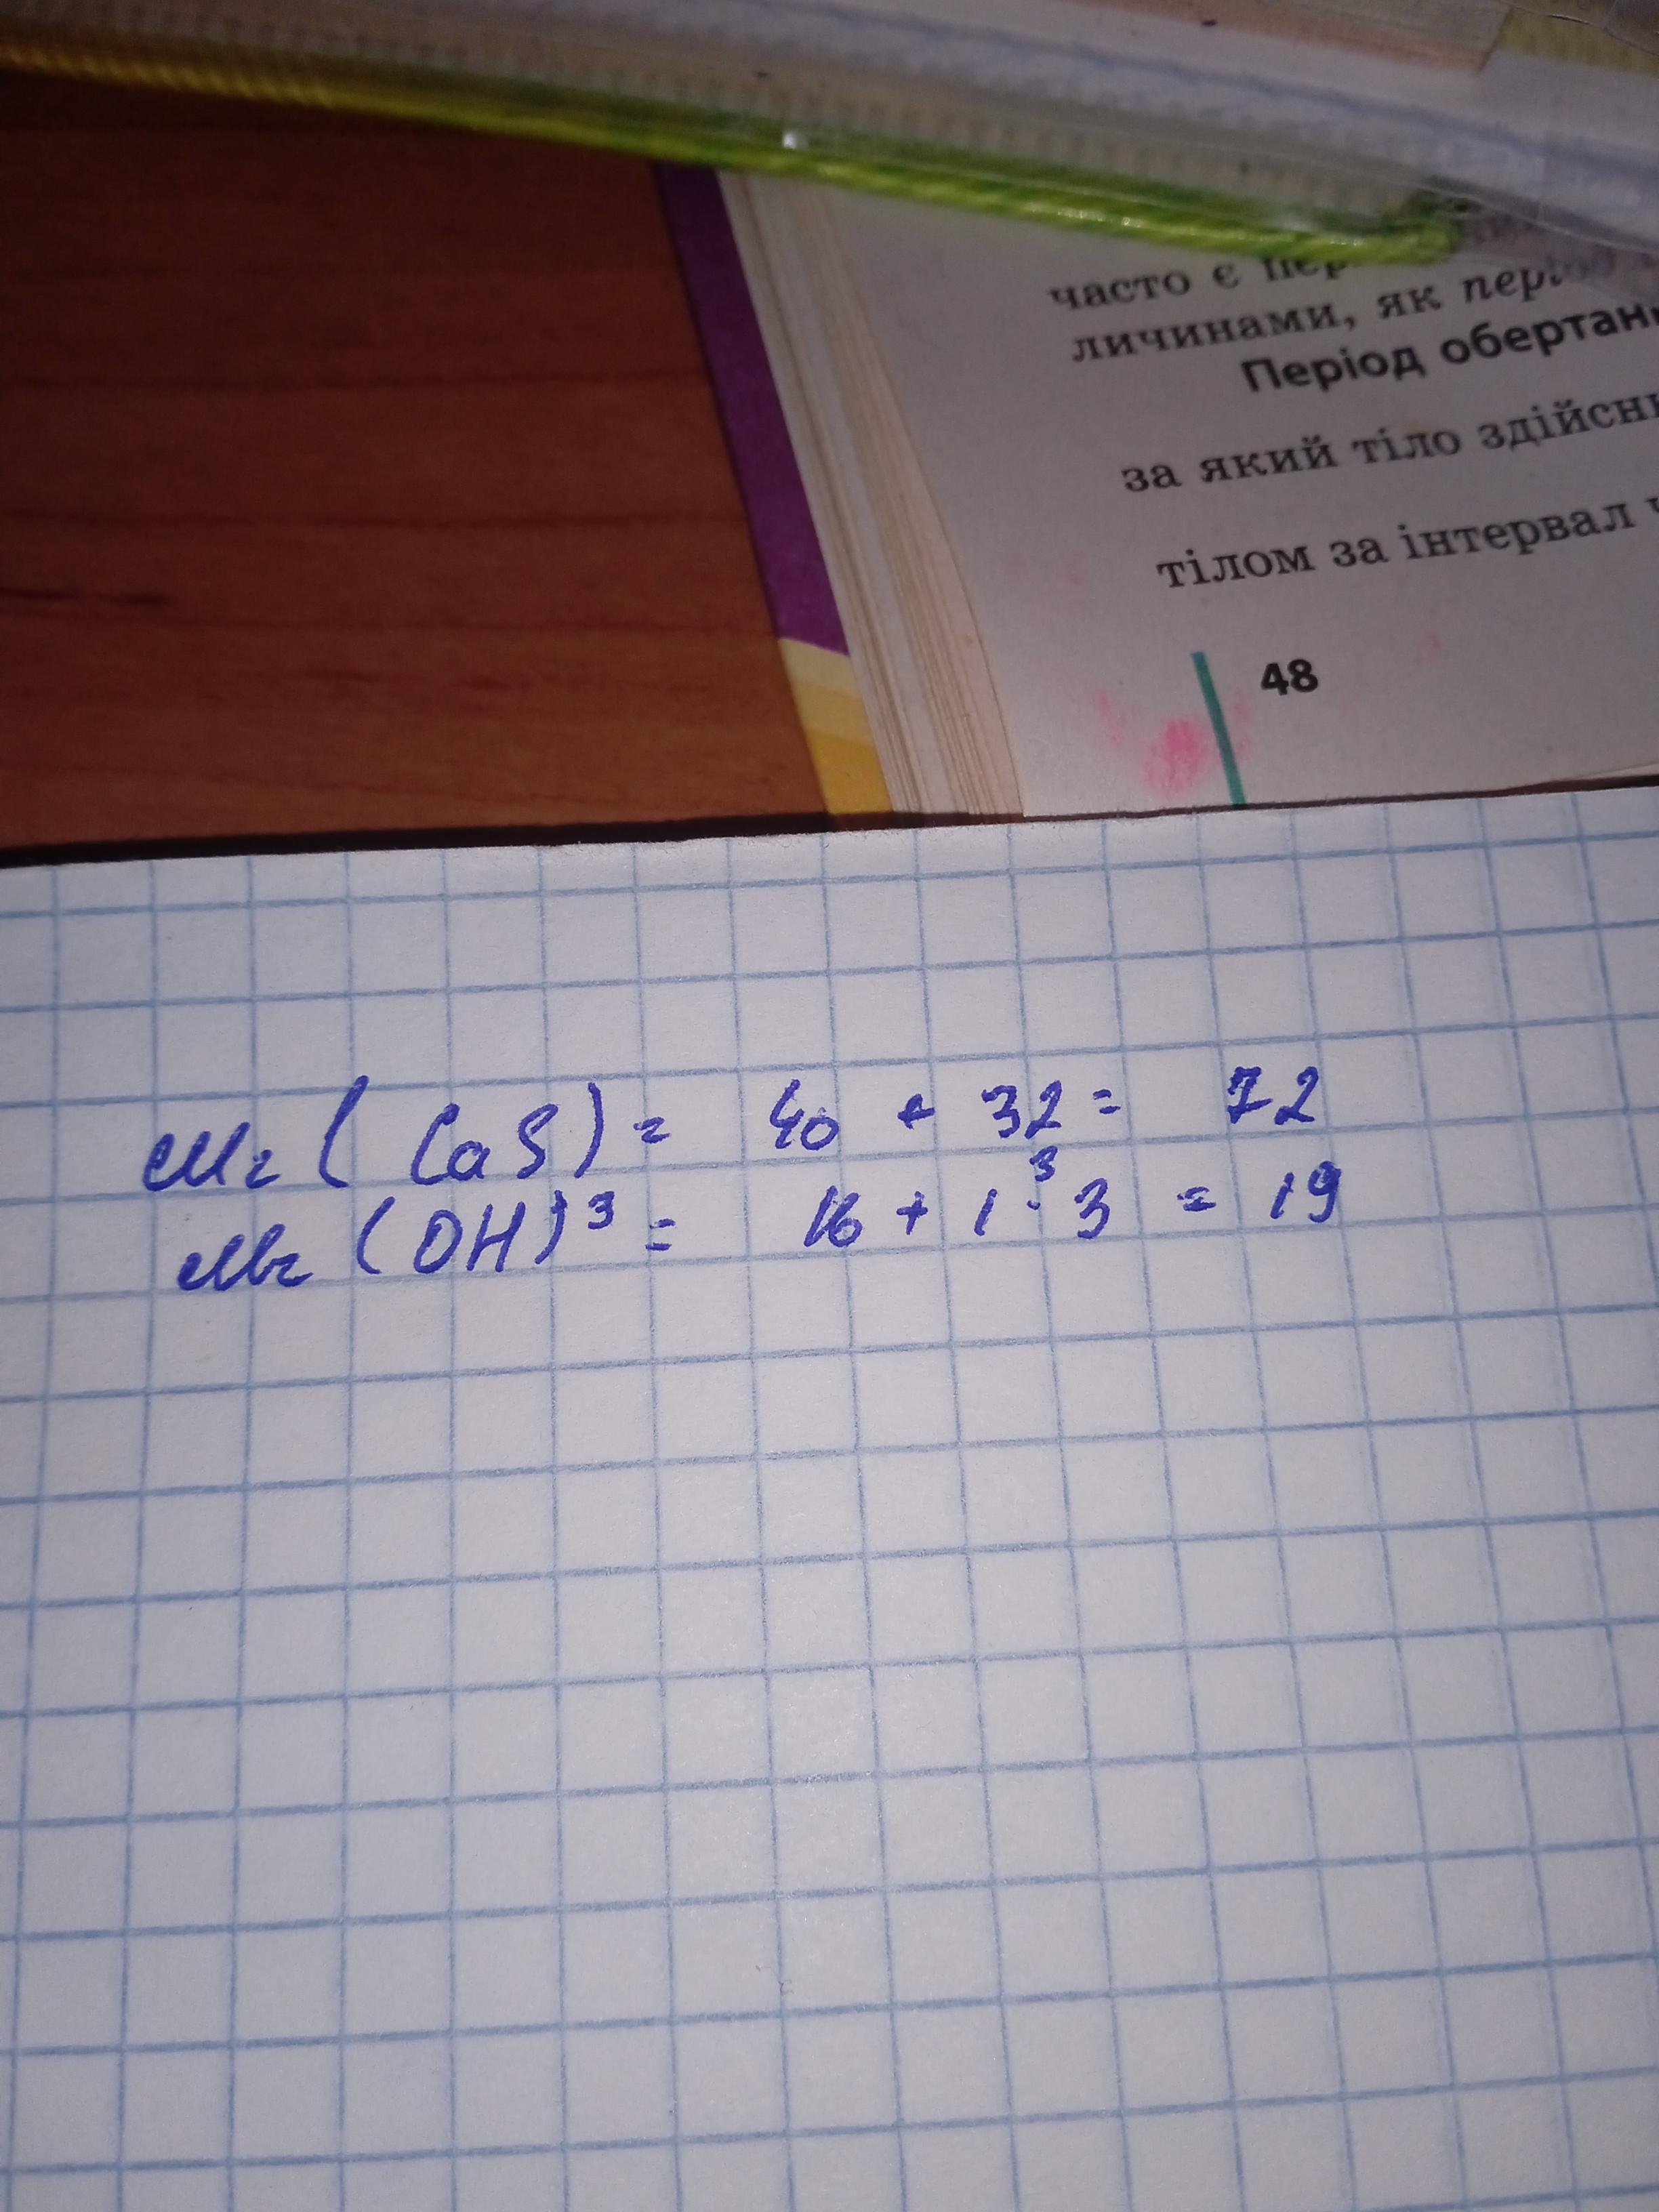 часто є пер
личинами, як період
Період обертан
за який тіло здійсн
тілом за інтервал
48
Mr (CaS) = 40 + 32 = 72
Mr (OH)³ = 16 + 1 · 3 = 19
3